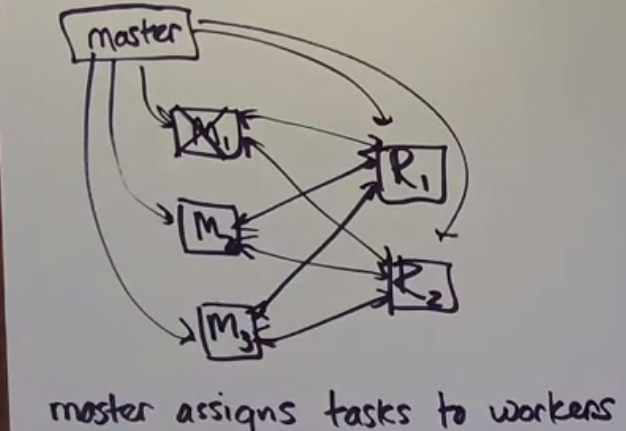 master
M1
R1
M
R2
M3
master assigns tasks to workers